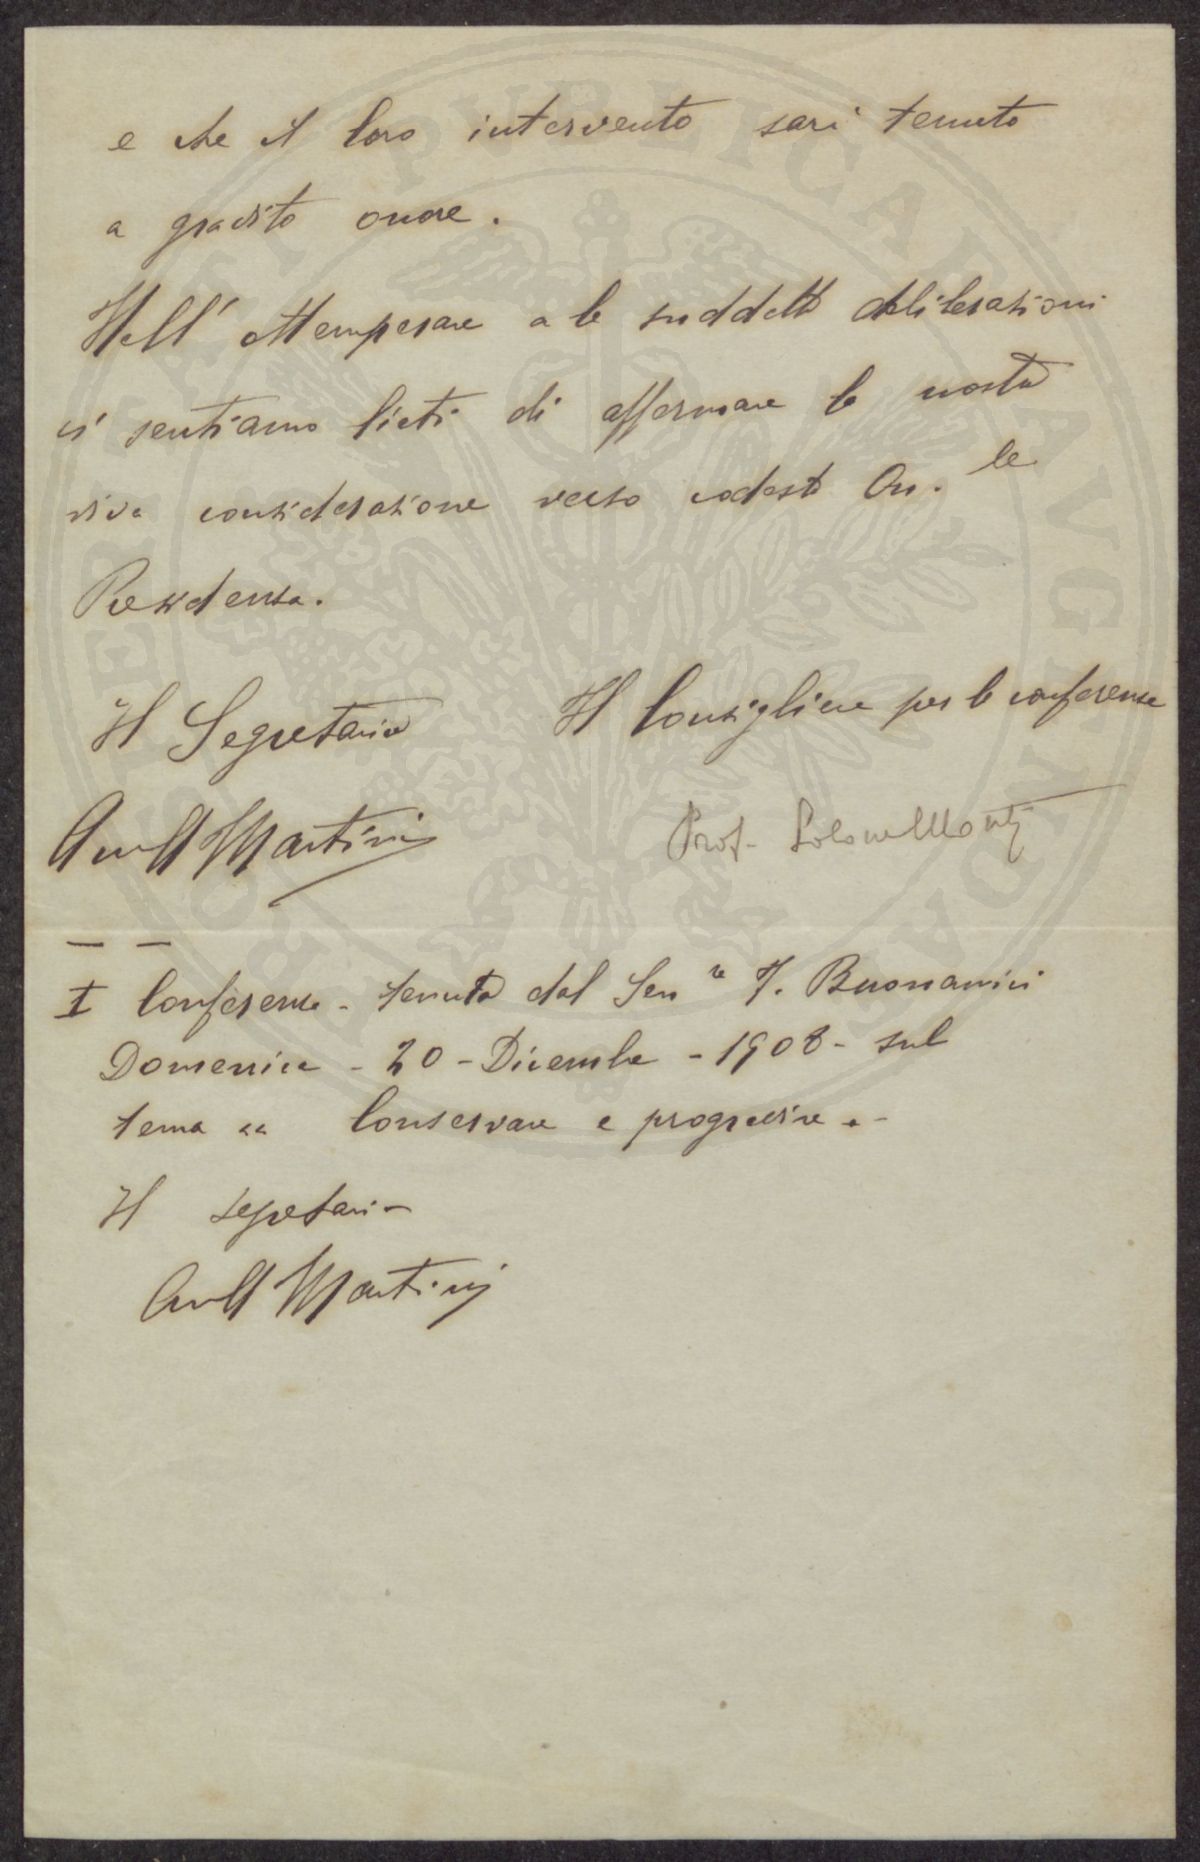 e che il loro intervento sarà tenuto
a gradito onore.
Nell' ottemperare a le suddette deliberazioni
ci sentiamo lieti di affermare la nostra
viva considerazione verso codesta On.le
Presidenza.
Il Segretario Il Consigliere per le conferenze
Martini Prof. Solone Monti
I Conferenza - tenuta dal Senre F. Buonamici
Domenica - 20 - Dicembre - 1908 - sul
tema " Conservare e progredire . -
Il segretario
Martini
PVBLICAE